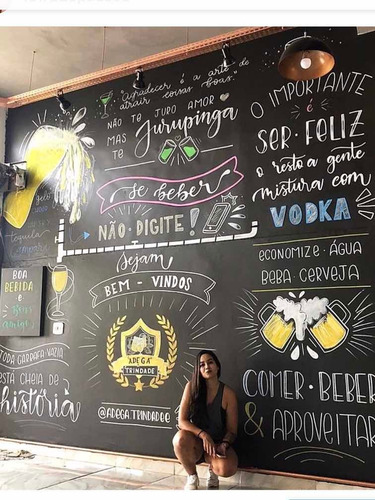 "Agradecer é a arte de
atrair coisas boas."
NÃO TE JURO AMOR
MAS
TE
Jurupinga
O IMPORTANTE
é
SER · FELIZ
o resto a gente
mistura com
VODKA
se beber
NÃO · DIGITE !
tequila
ECONOMIZE · ÁGUA
BEBA CERVEJA
Sejam
BEM - VINDOS
ADEGA
TRINDADE
@ADEGA.TRINDADE
BOA
BEBIDA
e
Bons
amigos
TODA GARRAFA VAZIA
ESTÁ CHEIA DE
história
COMER · BEBER
& APROVEITAR